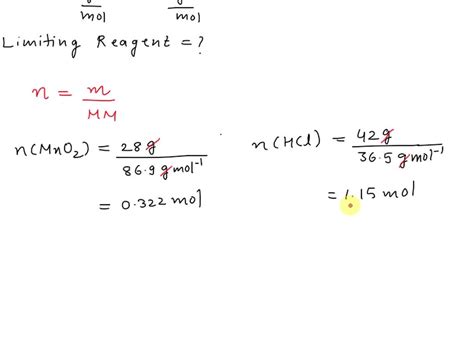 mol mol
Limiting Reagent = ?
n = m / MM
n(MnO₂) = 28 g / 86.9 g mol⁻¹
= 0.322 mol
n(HCl) = 42 g / 36.5 g mol⁻¹
= 1.15 mol